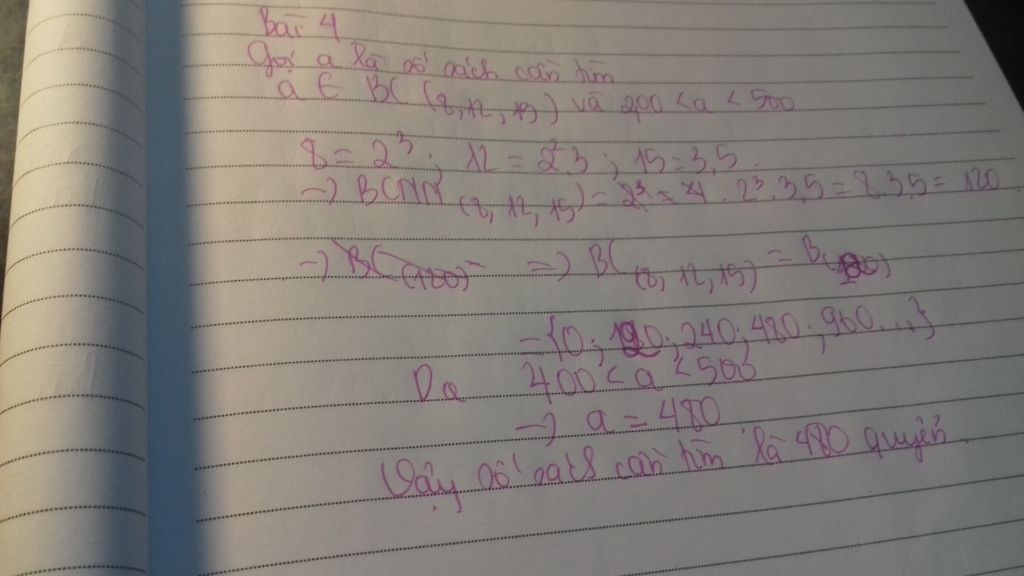 Bài 4
Gọi a là số sách cần tìm
a ∈ BC (8,12,15) và 200 < a < 500
8 = 2³; 12 = 2².3; 15 = 3.5.
→ BCNN (8,12,15) = 2³.3.5 = 8.3.5 = 120
→ BC(180) = => BC (8,12,15) = B(120)
= {0; 120; 240; 480; 960...}
Do 400 < a < 500
→ a = 480
Vậy số sách cần tìm là 480 quyển.